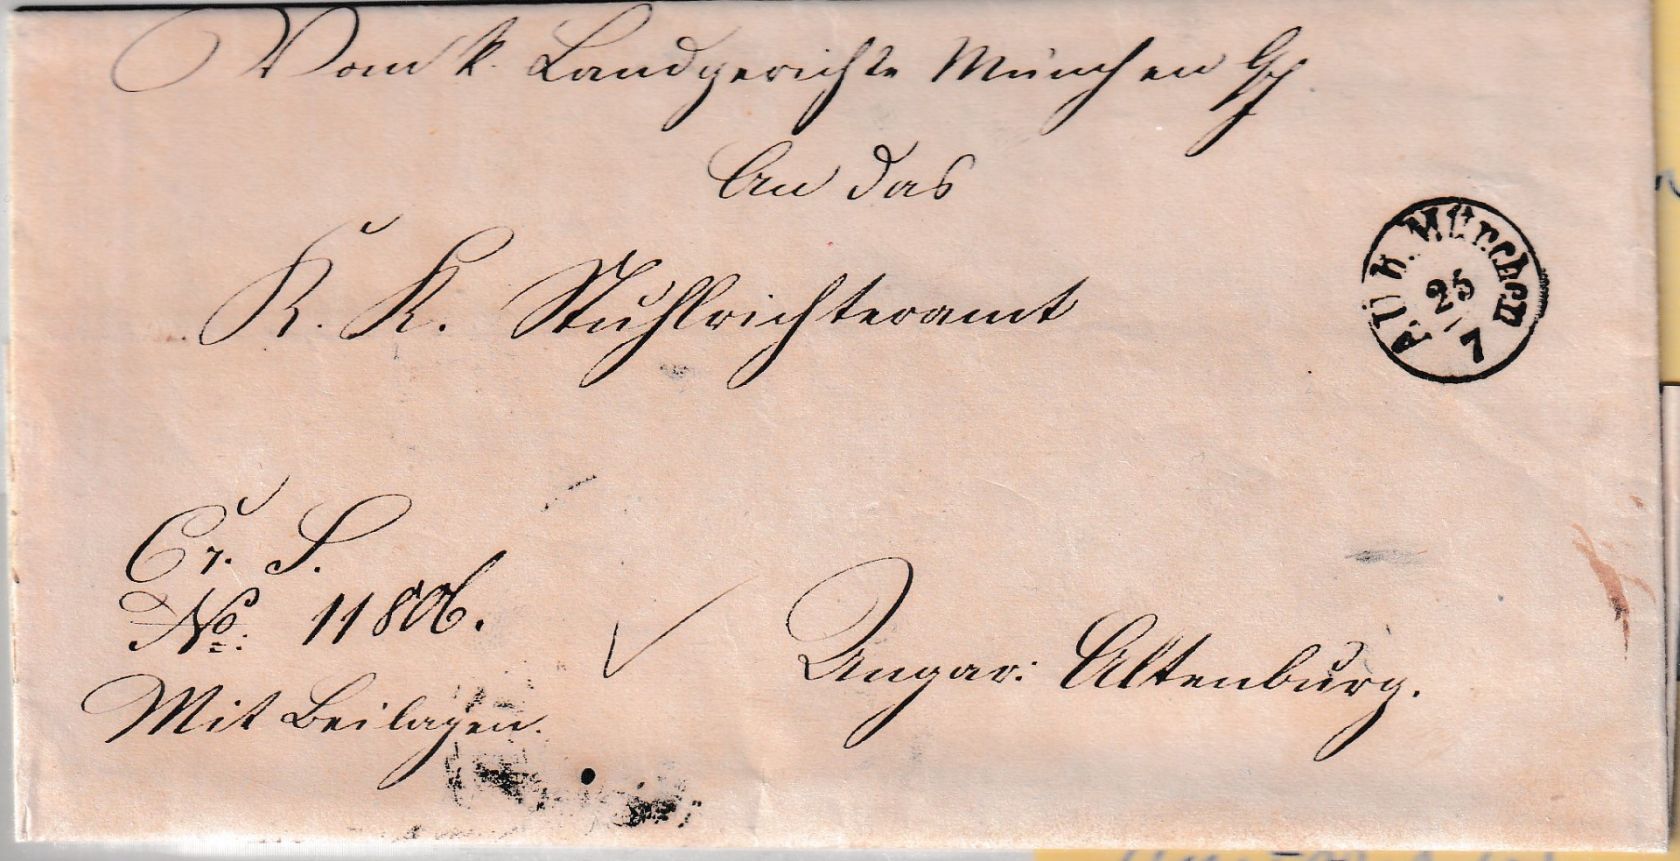 Vom k. Landgerichte München
An das
K. K. Stuhlrichteramt
Aüb. München
25
7
Cr. S.
No: 11806.
Mit Beilagen.
Ungar: Altenburg.